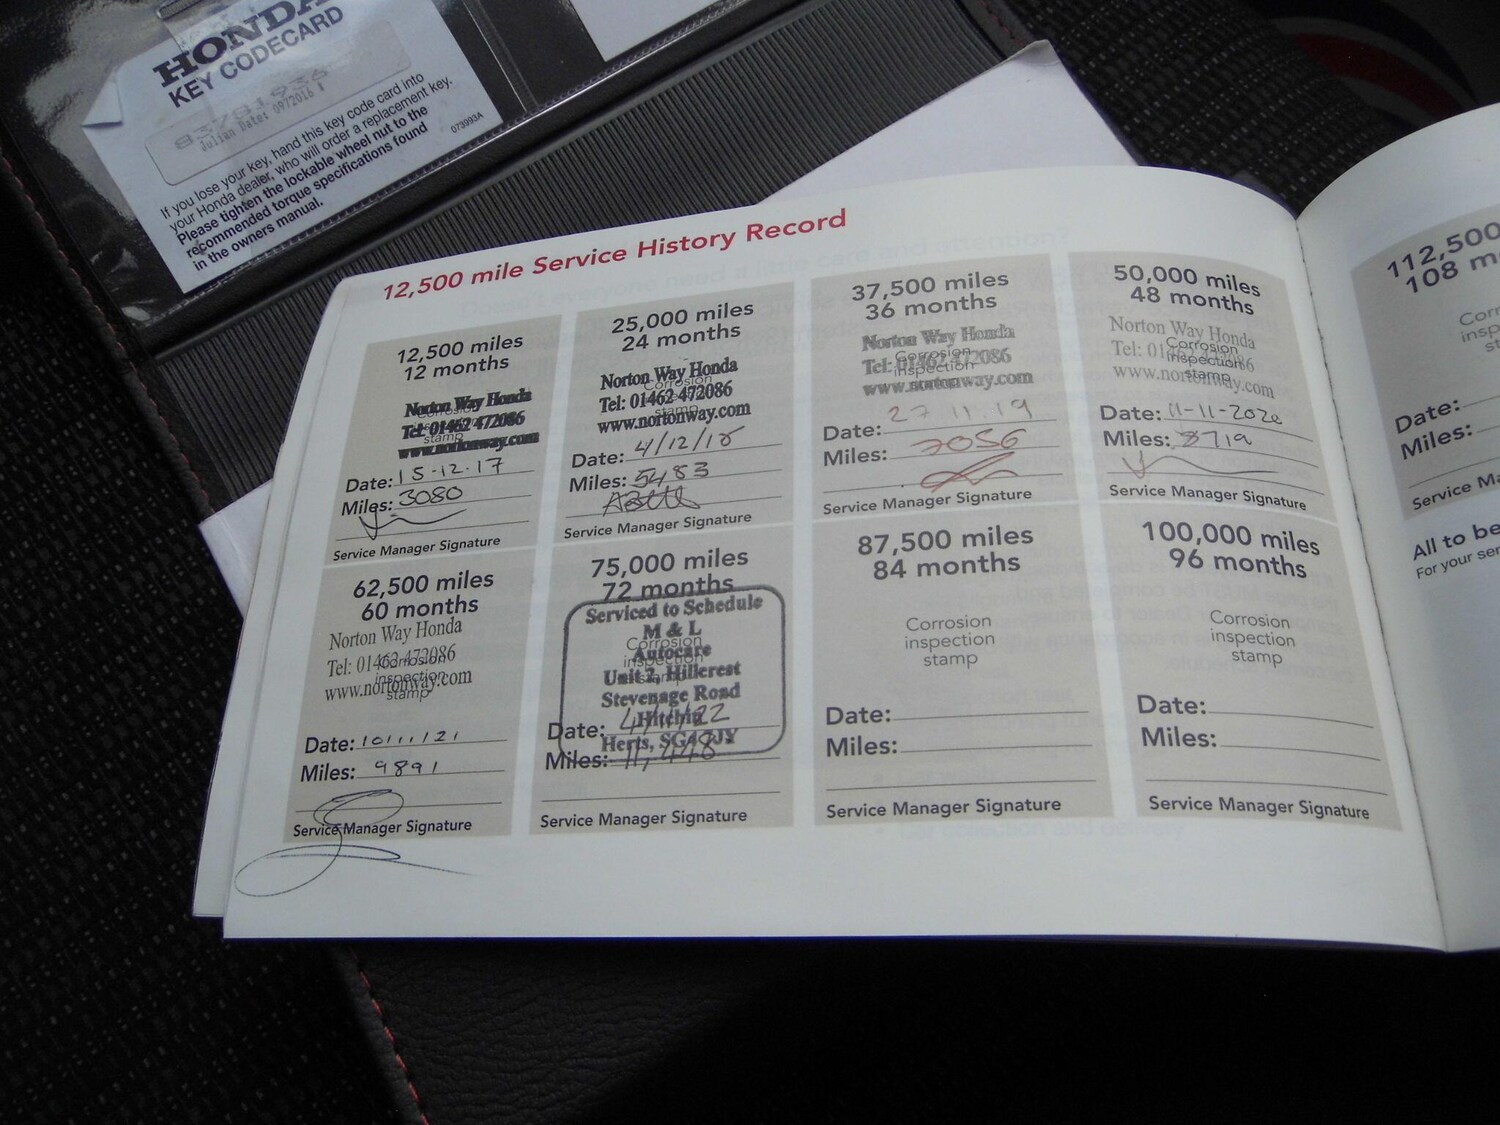 HONDA
KEY CODECARD
Julian Date: 0972016
If you lose your key, hand this key code card into
your Honda dealer, who will order a replacement key.
Please tighten the lockable wheel nut to the
recommended torque specifications found
in the owners manual.
073993A
12,500 mile Service History Record
12,500 miles
12 months
Corrosion
stamp
Norton Way Honda
Tel: 01462 472086
www.nortonway.com
Date: 15-12-17
Miles: 3080
Service Manager Signature
25,000 miles
24 months
Corrosion
Norton Way Honda
Tel: 01462 472086
www.nortonway.com
Date: 4/12/18
Miles: 5483
Service Manager Signature
37,500 miles
36 months
Corrosion
inspection
Norton Way Honda
Tel: 01462 472086
www.nortonway.com
Date: 27 11.19
Miles: 7056
Service Manager Signature
50,000 miles
48 months
Corrosion
inspection
stamp
Norton Way Honda
Tel: 01462 472086
www.nortonway.com
Date: 11-11-2020
Miles: 8719
Service Manager Signature
62,500 miles
60 months
Corrosion
inspection
stamp
Norton Way Honda
Tel: 01462 472086
www.nortonway.com
Date: 10/11/21
Miles: 9891
Service Manager Signature
75,000 miles
72 months
Corrosion
Serviced to Schedule
M & L
Autocare
Unit 2, Hillcrest
Stevenage Road
Hitchin
Herts, SG4 7JY
Date:
Miles: 11,448
Service Manager Signature
87,500 miles
84 months
Corrosion
inspection
stamp
Date:
Miles:
Service Manager Signature
100,000 miles
96 months
Corrosion
inspection
stamp
Date:
Miles:
Service Manager Signature
112,500
108
Date:
Miles:
Service
All to be
For your